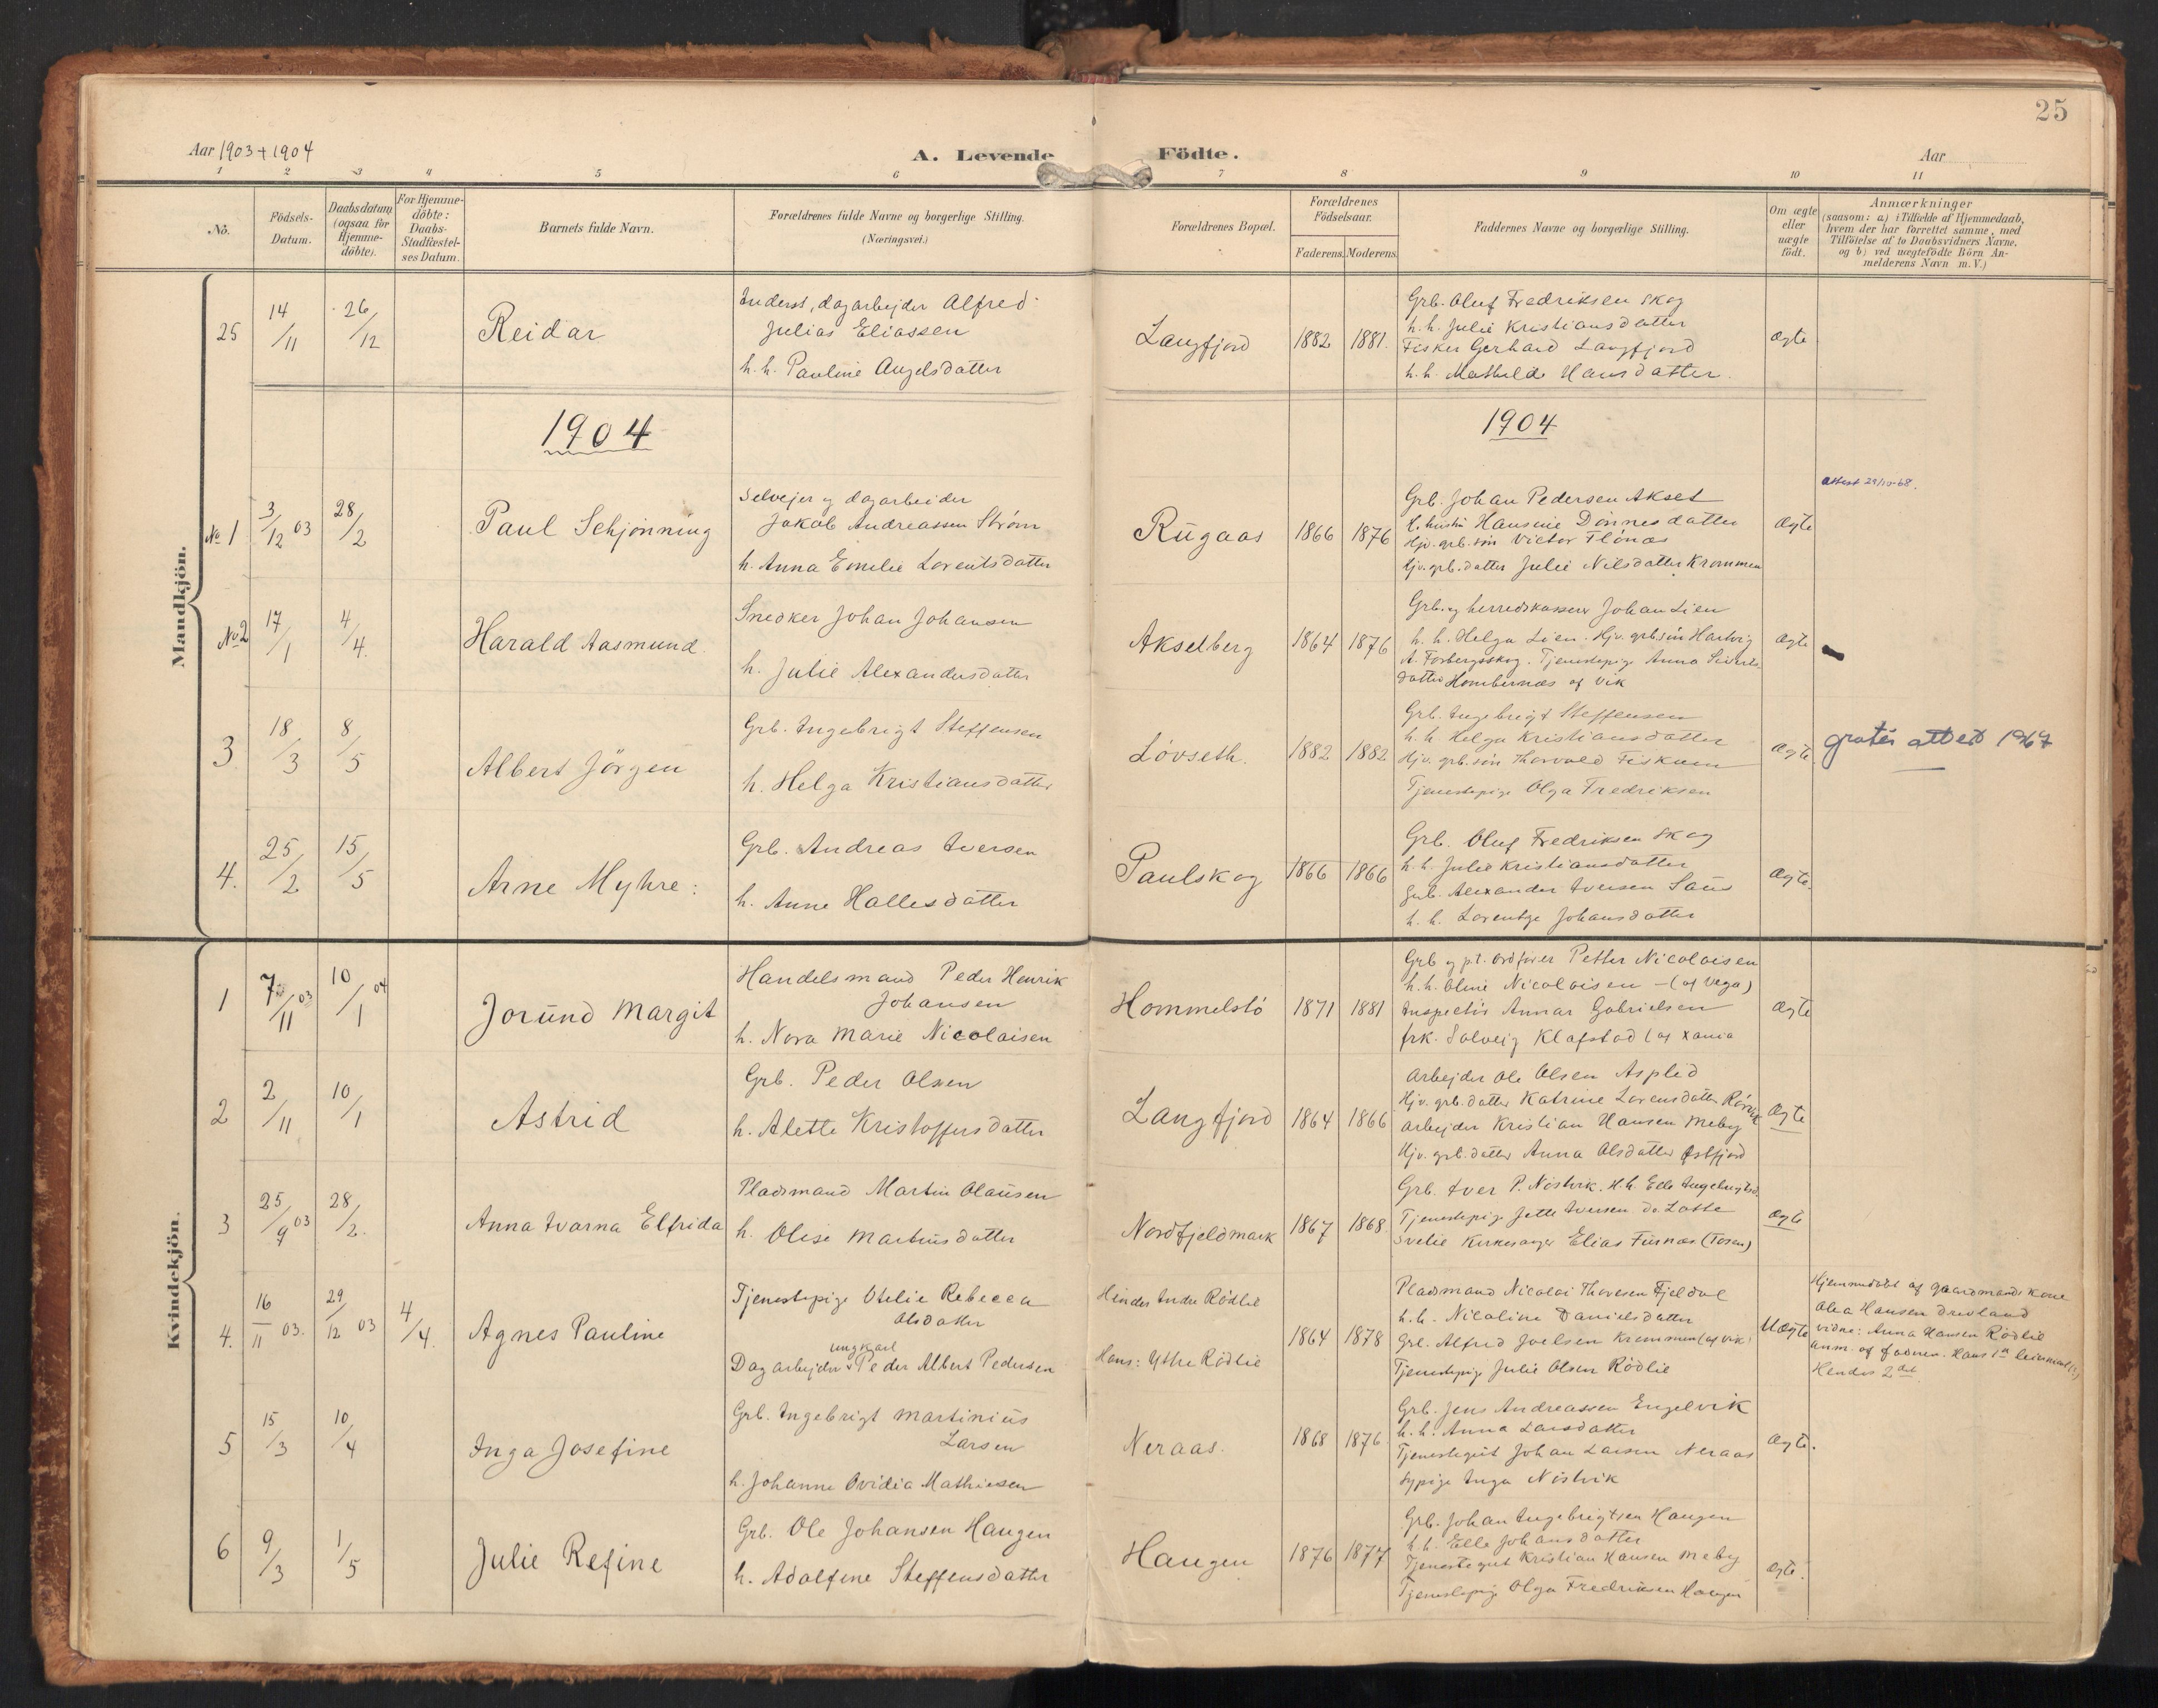 25
Aar 1903 + 1904
A. Levende Födte.
Aar
1 2 3 4 5 6 7 8 9 10 11
No.
Födsels-Datum.
Daabsdatum (ogsaa for Hjemme-döbte).
For Hjemme-döbte: Daabs-Stadfæstel-ses Datum.
Barnets fulde Navn.
Forældrenes fulde Navne og borgerlige Stilling. (Næringsvei.)
Forældrenes Bopæl.
Forældrenes Födselsaar.
Faderens. Moderens.
Faddernes Navne og borgerlige Stilling.
Om ægte eller uægte födt.
Anmærkninger
(saasom: a) i Tilfælde af Hjemmedaab, hvem der har forrettet samme, med Tilföielse af to Daabsvidners Navne, og b) ved uægtefödte Börn An-melderens Navn m. V.)
Mandkjön.
25
14/11
26/12
Reidar
Inderst, dagarbejder Alfred
Julias Eliassen
h. h. Pauline Angelsdatter
Langfjord
1882
1881.
Grb. Oluf Fredriksen Skog
h. h. Julie Kristiansdatter
Fisker Gerhard Langfjord
h. h. Mathilde Hansdatter
Ægte
1904
1904
No 1
3/12 03
28/2
Paul Schjönning
Selvejer og dagarbeider
Jakob Andreassen Strøm
h. Anna Emilie Lorentsdatter
Rugaas
1866
1876
Grb. Johan Pedersen Akset
H. hustru Hansine Dönnesdatter
Hjv. grb. sön Victor Flönæs
Hjv. grb. datter Julie Nilsdatter Krommen
Ægte
Attest 29/10-68.
No 2
17/1
4/4.
Harald Aasmund.
Snedker Johan Johansen
h. Julie Alexandersdatter
Akselberg
1864
1876
Grb. og herredskasserer Johan Lien
h. h. Helga Lien. Hjv. grb. sön Hartvig
A. Forbergsskog. Tjenestepige Anna Siverts
datter Hombernæs af Vik
Ægte
3
18/3
8/5
Albert Jörgen
Grb. Ingebrigt Steffensen
h. Helga Kristiansdatter
Lövseth.
1882
1882
Grb. Ingebrigt Steffensen
h. h. Helga Kristiansdatter
Hjv. grb. sön Thorvald Fiskum
Tjenestepige Olga Fredriksen
Ægte
gratis attest 1967
4.
25/2
15/5
Arne Myhre:
Grb. Andreas Iversen
h. Anne Hallesdatter
Paulskog
1866
1866
Grb. Oluf Fredriksen Skog
h. h. Julie Kristiansdatter
Grb. Alexander Iversen Saus
h. h. Lorentze Johansdatter
Ægte.
Kvindekjön.
1
7/11 03
10/1 04
Jorund Margit
Handelsmand Peder Henrik
Johansen
h. Nora Marie Nicolaisen
Hommelstö
1871
1881
Grb. og p.t. Ordförer Petter Nicolaisen
h. h. Oline Nicolaisen - (af Vega)
Inspectör Annar Gabrielsen
frk. Solveig Klafstad (af Xania
Ægte
2
2/11
10/1
Astrid
Grb. Peder Olsen
h. Alette Kristoffersdatter
Langfjord
1864
1866
Arbejder Ole Olsen Asplid
Hjv. grb. datter Katrine Lorensdatter
Arbejder Kristian Hansen Meby
Hjv. grb. datter Anna Olsdatter Østfjord
Ægte
3
25/9 03
28/2.
Anna Ivarna Elfrida
Pladsmand Martin Olausen
h. Olise Martinsdatter
Nordfjeldmark
1867
1868
Grb. Iver P. Nöstvik. H. h. Elle Ingebrigtsd.
Tjenestepige Jette Iversen do. Lotte
Svelie Kirkesanger Elias Furnæs (Tosen)
Ægte
4.
16/11 03.
29/12 03
4/4.
Agnes Pauline
Tjenestepige Otelie Rebecca
Olsdatter
ungkarl
Dagarbejder Peder Albert Pedersen
Hendes Indre Rödlie
Hans: Ythre Rödlie
1864
1878
Pladsmand Nicolai Thoresen Fjeldal
h. h. Nicoline Danielsdatter
Grb. Alfred Joelsen Krommen (af Vik)
Tjenestepige Julie Olsen Rödlie
Uægte
Hjemmedöbt af gaardmands kone
Olea Hansen Drevland
vidne: Anna Hansen Rödlie
anm. af faderen. Hans 1ste leiermaal (?)
Hendes 2det
5
15/3
10/4
Inga Josefine
Grb. Ingebrigt Martinius
Larsen
h. Johanne Ovidia Mathisen
Neraas.
1868
1876
Grb. Jens Andreassen Engelvik
h. h. Anna Larsdatter
Tjenestegut Johan Larsen Neraas
Sypige Inga Nöstvik
Ægte.
6
9/3
1/5
Julie Refine
Grb. Ole Johansen Haugen
h. Adolfine Steffensdatter
Haugen
1876
1877
Grb. Johan Ingebrigtsen Haugen
h. h. Elle Johansdatter
Tjenestegut Kristian Hansen Meby
Tjenestepige Olga Fredriksen Haugen
Ægte.